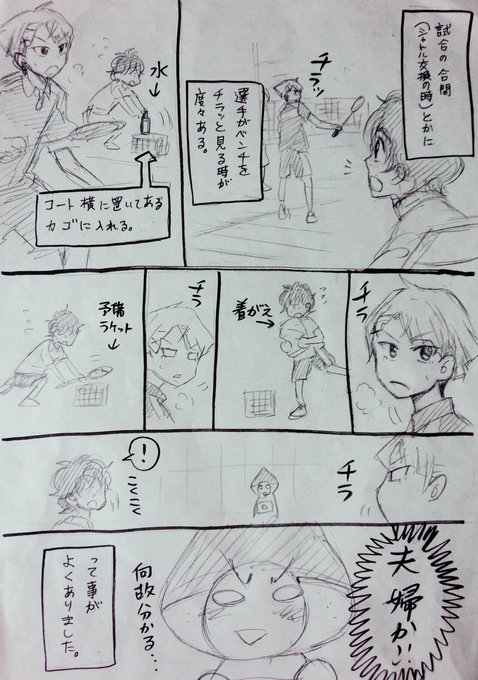 試合の合間
(シャトル交換の時)とかに
チラッ
選手がベンチを
チラッと見る時が
度々ある。
水
コート横に置いてある
カゴに入れる。
チラ
着がえ
チラ
予備
ラケット
チラ
!
こくこく
夫婦か!!
何故分かる…
って事が
よくありました。